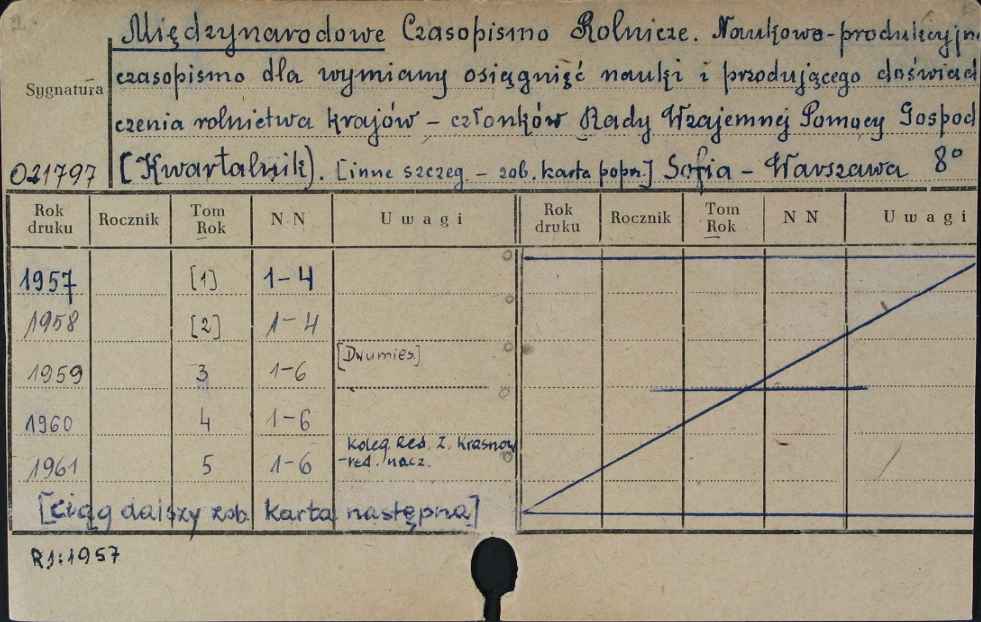 Międzynarodowe Czasopismo Rolnicze. Naukowo-produkcyjn
Sygnatura
czasopismo dla wymiany osiągnięć nauki i przodującego doświad
czenia rolnictwa krajów - członków Rady Wzajemnej Pomocy Gospod
021797 [Kwartalnik). [inne szczeg - zob. karta popr.] Sofia - Warszawa 8°
Rok druku Rocznik Tom Rok NN Uwagi Rok druku Rocznik Tom Rok NN Uwagi
1957 [1] 1-4
1958 [2] 1-4
[Dwumies.]
1959 3 1-6
1960 4 1-6
Koleg. Red. Z. Krasnow
1961 5 1-6 -red. nacz.
[Ciąg dalszy zob. karta następna]
R1:1957